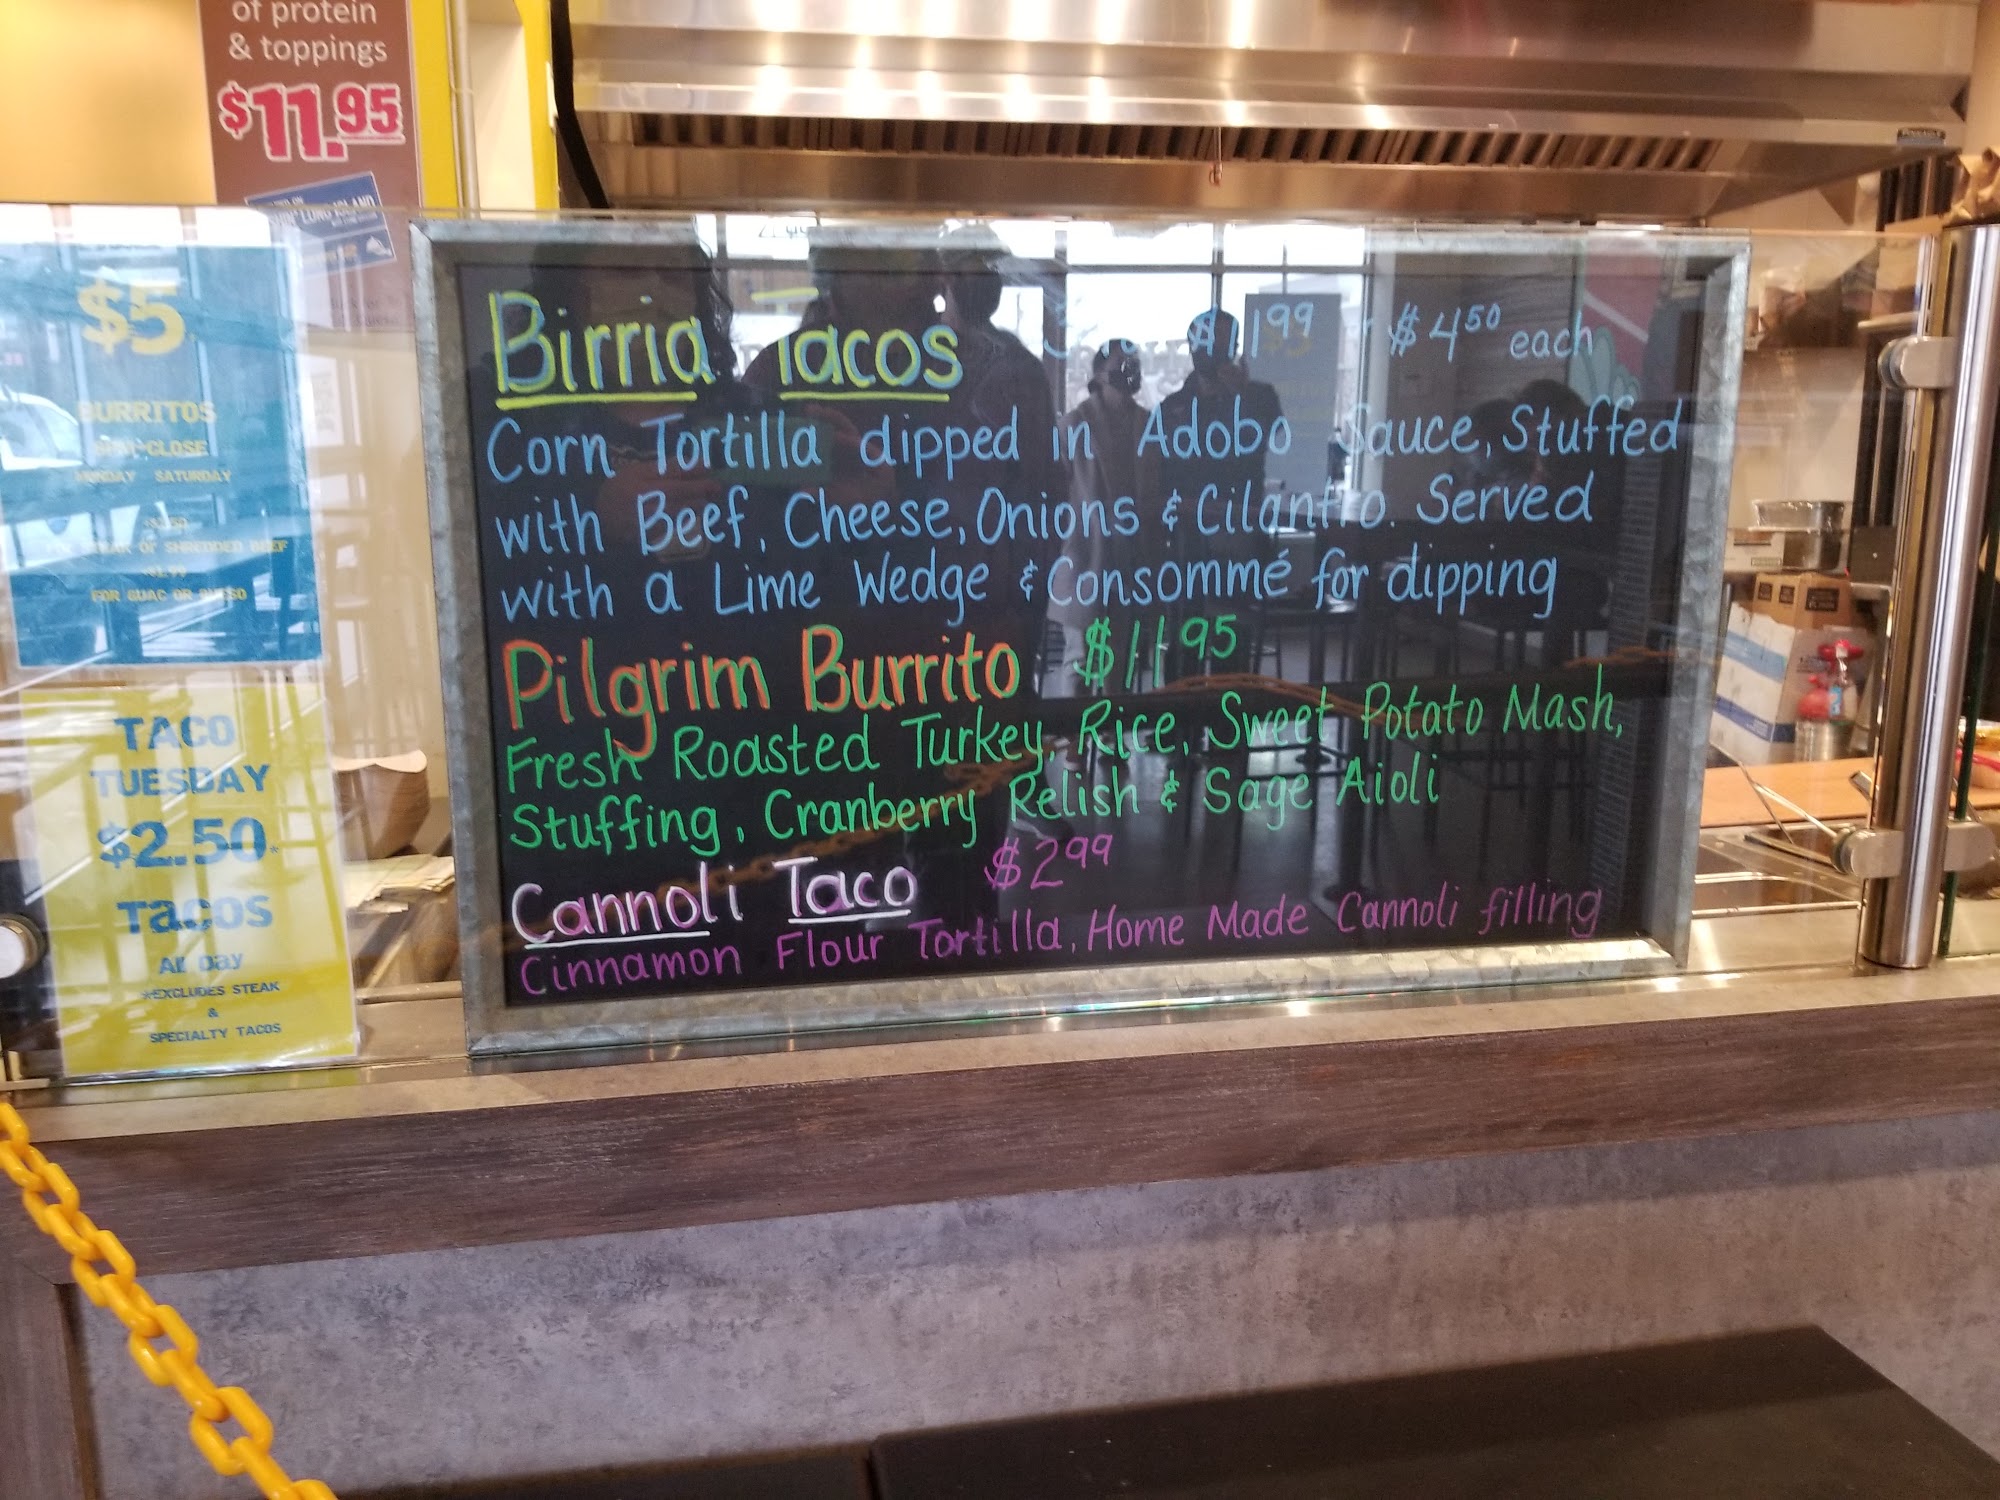 of protein
& toppings
$11.95
$5
BURRITOS
CLOSE
MONDAY SATURDAY
OF SHREDDED BEEF
FOR GUAC OR QUESO
TACO
TUESDAY
$2.50*
Tacos
All Day
*EXCLUDES STEAK
&
SPECIALTY TACOS
Birria Tacos $11.99 $4.50 each
Corn Tortilla dipped in Adobo Sauce, Stuffed
with Beef, Cheese, Onions & Cilantro. Served
with a Lime Wedge & Consommé for dipping
Pilgrim Burrito $11.95
Fresh Roasted Turkey, Rice, Sweet Potato Mash,
Stuffing, Cranberry Relish & Sage Aioli
Cannoli Taco $2.99
Cinnamon Flour Tortilla, Home Made Cannoli filling